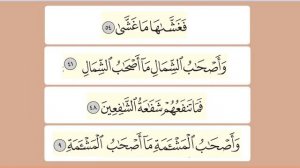 فَغَشَّىٰهَا مَا غَشَّىٰ ٥٤
وَأَصْحَٰبُ ٱلشِّمَالِ مَآ أَصْحَٰبُ ٱلشِّمَالِ ٤١
فَمَا تَنفَعُهُمْ شَفَٰعَةُ ٱلشَّٰفِعِينَ ٤٨
وَأَصْحَٰبُ ٱلْمَشْـَٔمَةِ مَآ أَصْحَٰبُ ٱلْمَشْـَٔمَةِ ٩